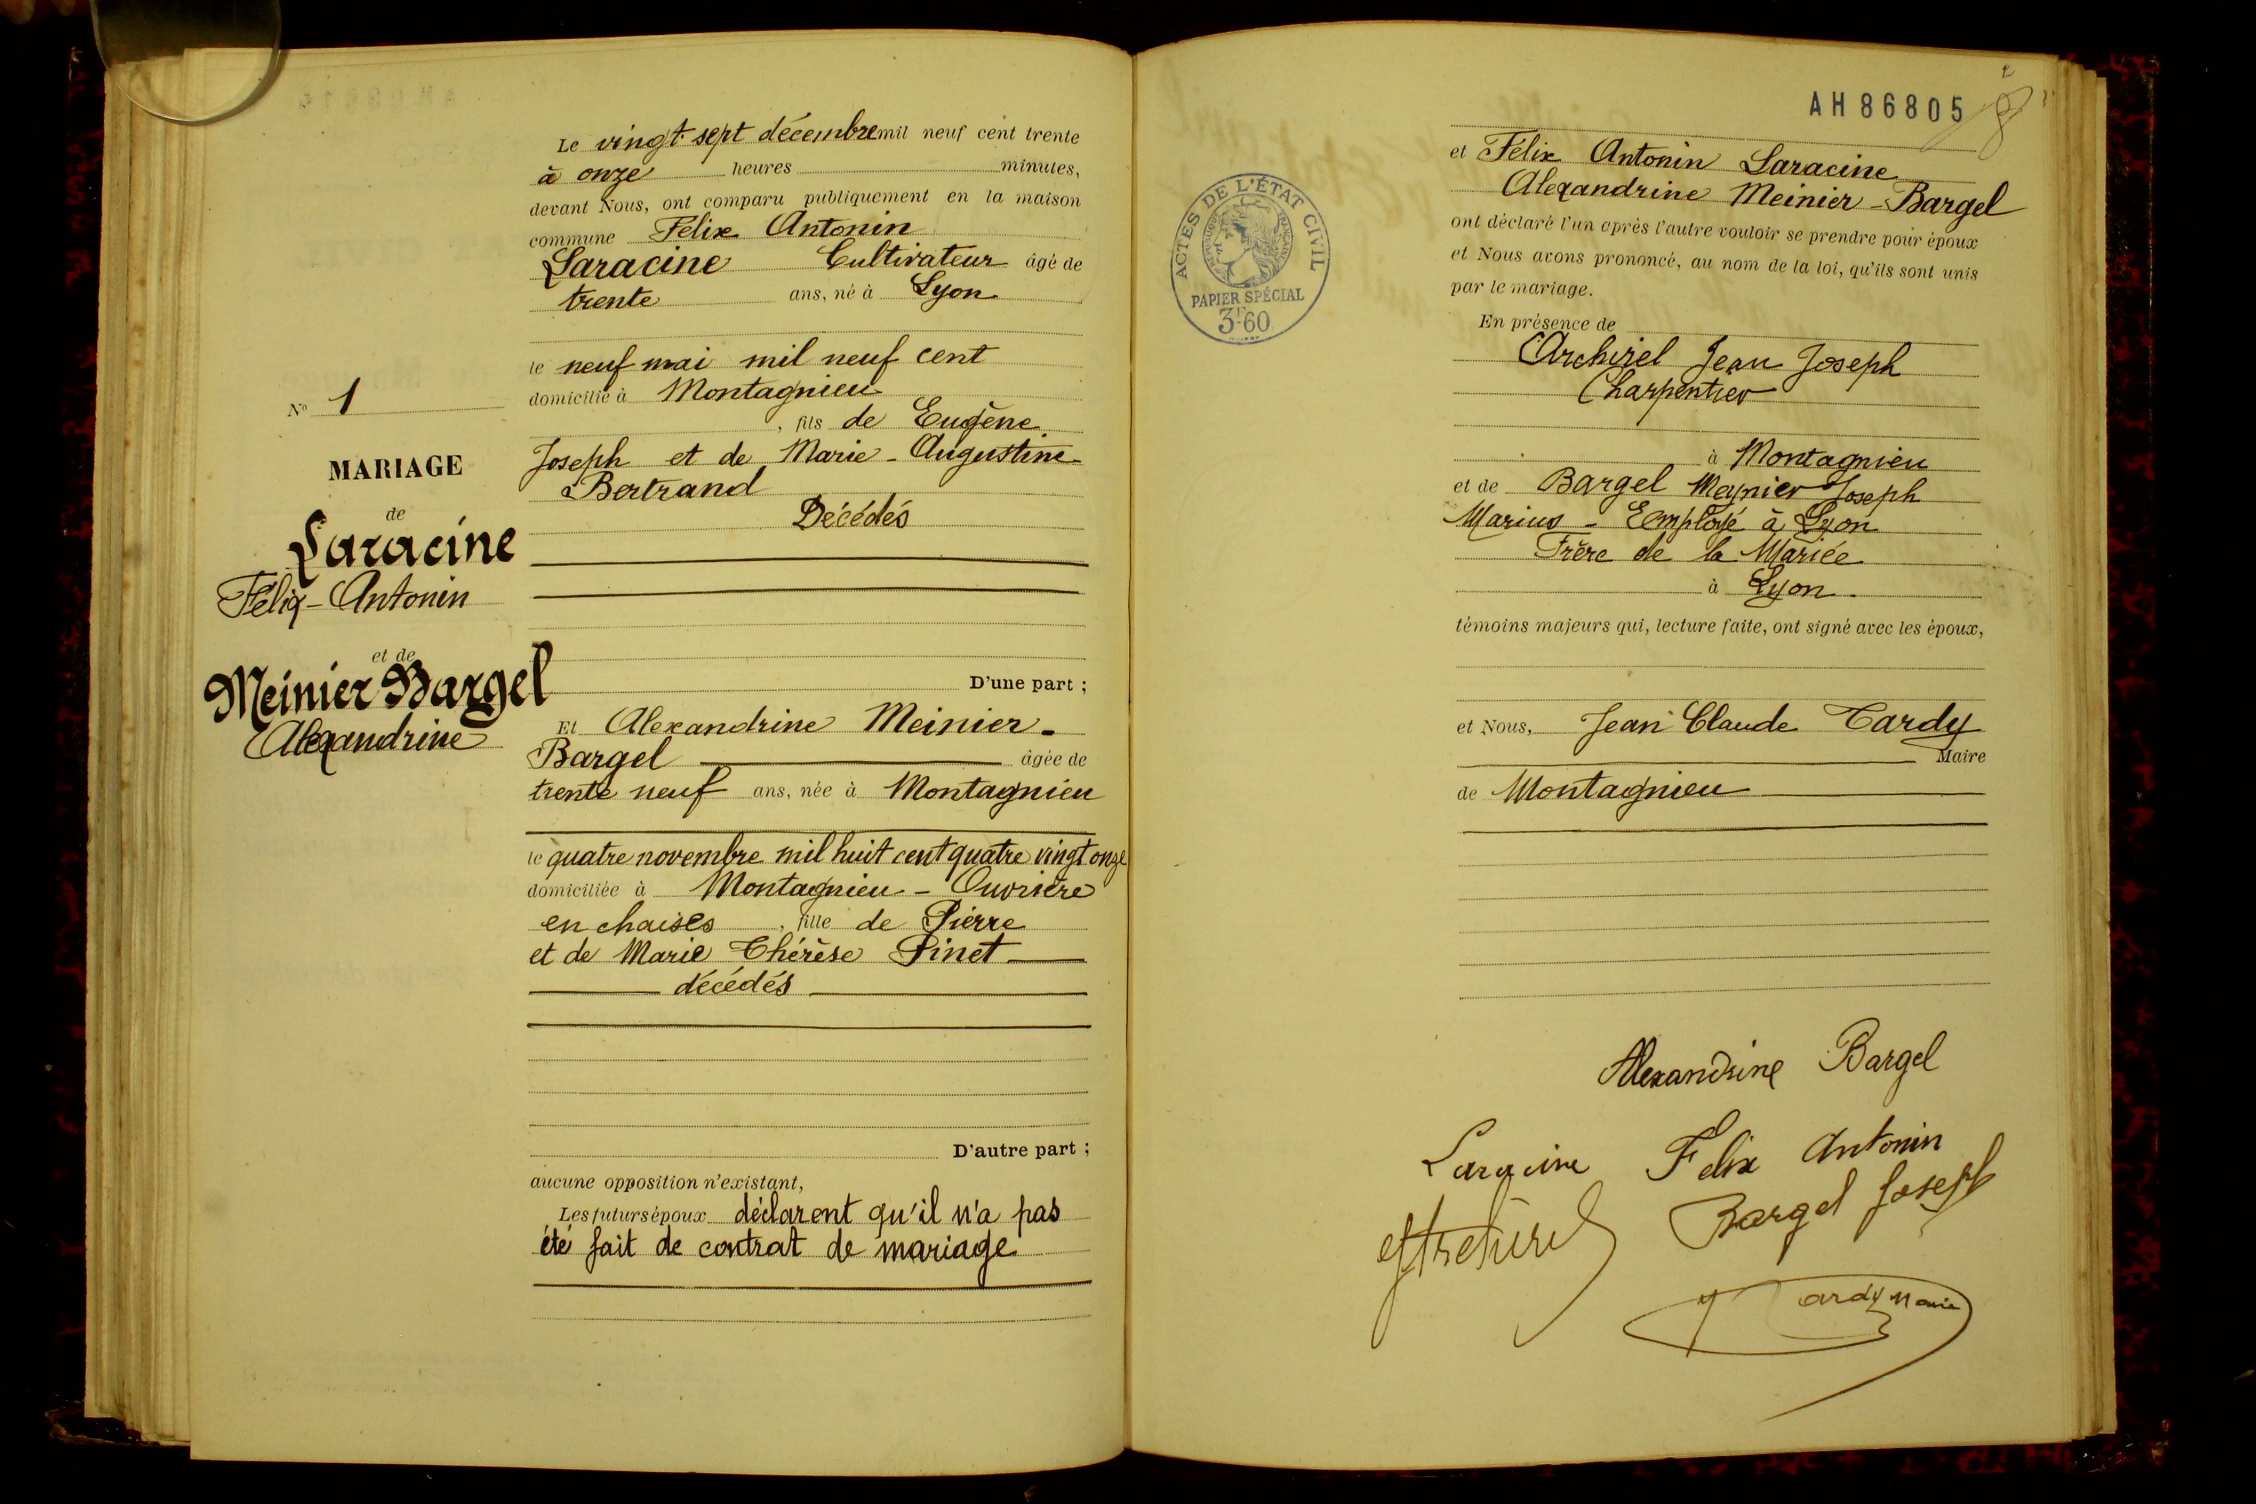 Le vingt-sept décembre mil neuf cent trente
à onze heures minutes,
devant Nous, ont comparu publiquement en la maison
commune Félix Antonin
Laracine Cultivateur âgé de
trente ans, né à Lyon
le neuf mai mil neuf cent
domicilié à Montagnieu
, fils de Eugène
Joseph et de Marie-Augustine
Bertrand
Décédés
D'une part ;
Et Alexandrine Meinier-
Bargel âgée de
trente neuf ans, née à Montagnieu
le quatre novembre mil huit cent quatre vingt onze
domiciliée à Montagnieu - Ouvrière
en chaises , fille de Pierre
et de Marie Thérèse Pinet
décédés
D'autre part ;
aucune opposition n'existant,
Les futurs époux déclarent qu'il n'a pas
été fait de contrat de mariage
N° 1
MARIAGE
de
Laracine
Félix-Antonin
et de
Meinier Bargel
Alexandrine
AH 86805
ACTES DE L'ÉTAT CIVIL
RÉPUBLIQUE FRANÇAISE
PAPIER SPÉCIAL
3F60
et Félix Antonin Laracine
Alexandrine Meinier-Bargel
ont déclaré l'un après l'autre vouloir se prendre pour époux
et Nous avons prononcé, au nom de la loi, qu'ils sont unis
par le mariage.
En présence de
Archirel Jean Joseph
Charpentier
à Montagnieu
et de Bargel Meynier Joseph
Marius - Employé à Lyon
Frère de la Mariée
à Lyon.
témoins majeurs qui, lecture faite, ont signé avec les époux,
et Nous, Jean Claude Tardy
Maire
de Montagnieu
Alexandrine Bargel
Laracine Felix Antonin
Bargel Joseph
Tardy Maire